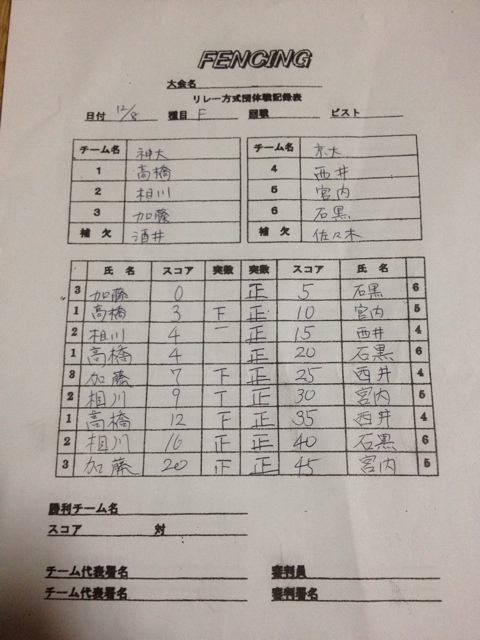 FENCING
大会名
リレー方式団体戦記録表
日付 12/8 種目 F 回戦 ピスト
チーム名 神大 チーム名 京大
1 高橋 4 西井
2 相川 5 宮内
3 加藤 6 石黒
補欠 酒井 補欠 佐々木
氏名 スコア 実数 実数 スコア 氏名
3 加藤 0 正 5 石黒 6
1 高橋 3 下 正 10 宮内 5
2 相川 4 一 正 15 西井 4
1 高橋 4 正 20 石黒 6
3 加藤 7 下 正 25 西井 4
2 相川 9 T 正 30 宮内 5
1 高橋 12 下 正 35 西井 4
2 相川 16 正 40 石黒 6
3 加藤 20 正 45 宮内 5
勝利チーム名
スコア 対
チーム代表署名 審判員
チーム代表署名 審判署名